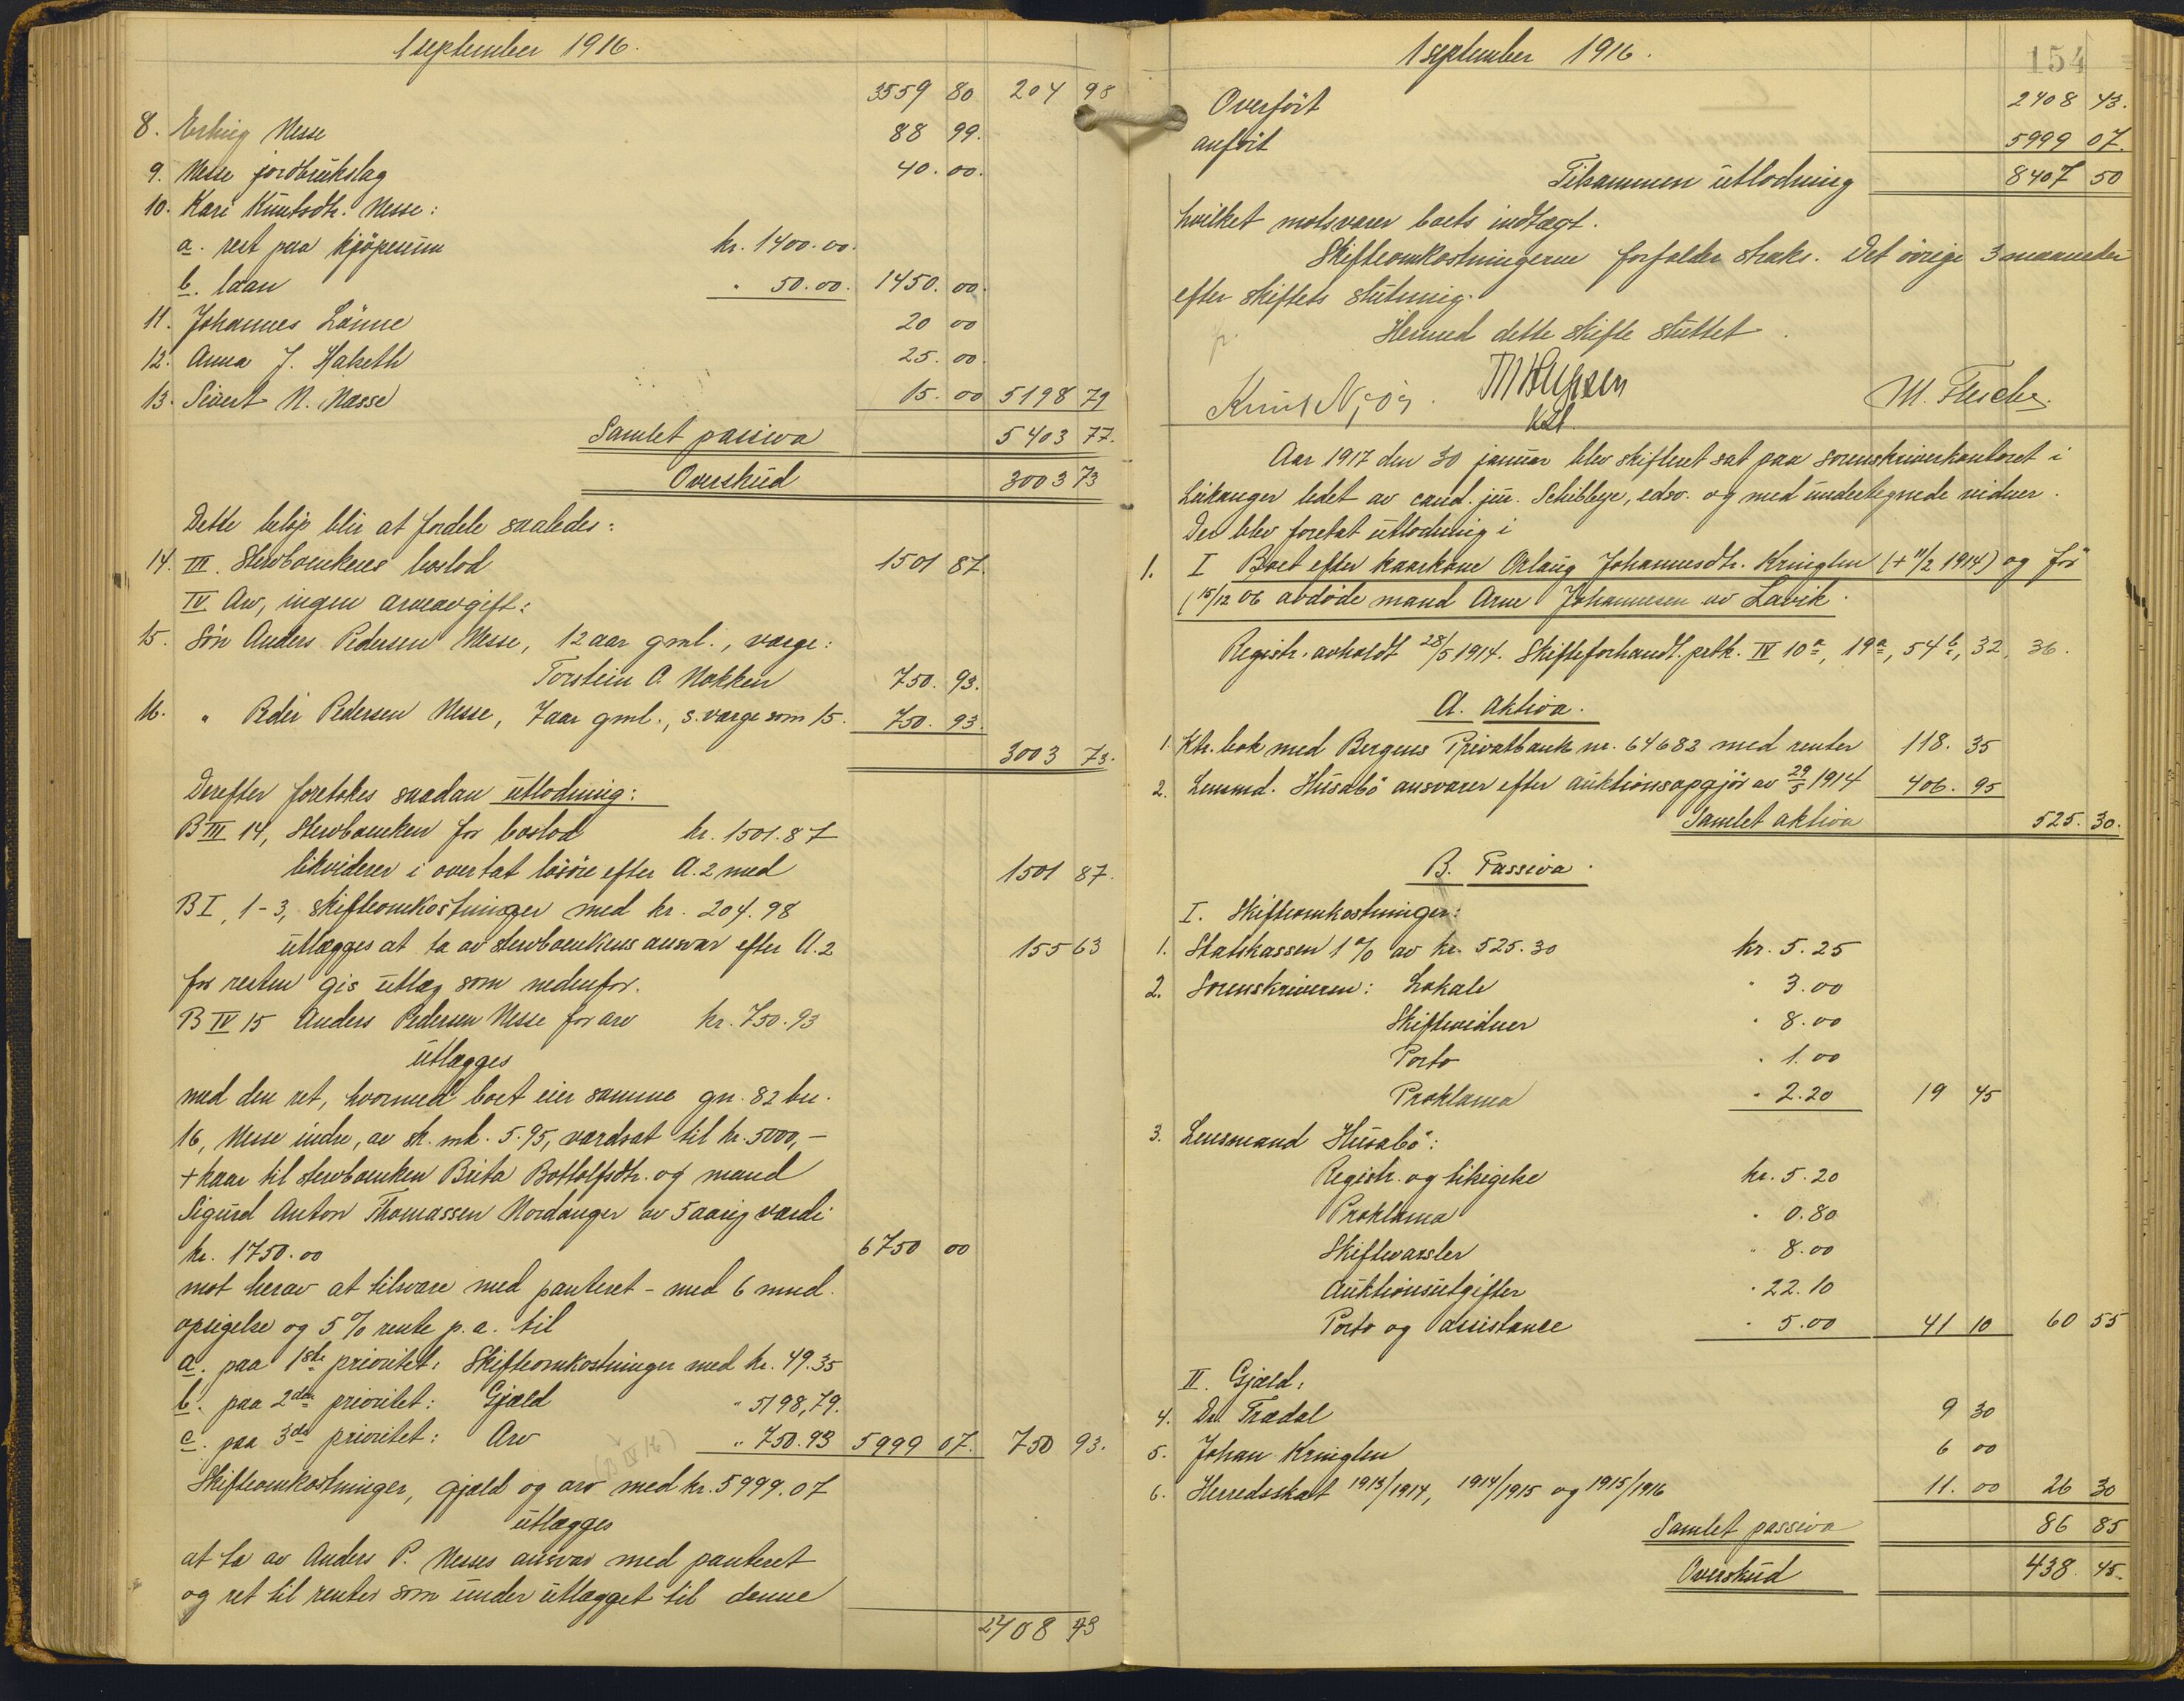 1 september 1916.
3559 80 204 98
8. Erling Nesse 88 99.
9. Nesse jordbrukslag 40.00.
10. Kari Knutsdtr. Nesse:
a. rest paa kjöpesum kr. 1400.00.
b. laan " 50.00. 1450.00.
11. Johannes Lönne 20 00
12. Anna J. Hakseth 25.00.
13. Sivert N. Nesse 15.00 5198 79
Samlet passiva 5403 77.
Overskud 3003 73
Dette belöp blir at fordele saaledes:
14. III. Stervboenkens boslod 1501 87.
IV Arv, ingen arveavgift:
15. Sön Anders Pedersen Nesse, 12 aar gml., værge:
Torstein A. Nokken 750.93.
16. " Peder Pedersen Nesse, 7 aar gml., s. værge som 15. 750.93.
3003 73.
Derefter foretokes saadan utlodning:
B III 14, Stervboenken for boslod kr. 1501.87
likviderer i overtat lösöre efter A.2 med 1501 87.
B I, 1-3, skifteomkostninger med kr. 204.98
utlægges at ta av stervboenkens ansvar efter A.2 155 63
for resten gis utlæg som nedenfor.
B IV 15 Anders Pedersen Nesse for arv kr. 750.93
utlægges
med den ret, hvormed boet eier samme gn. 82 bn.
16, Nesse indre, av sk. mk. 5.95, værdsat til kr. 5000,-
+ kaar til stervboenken Brita Bottolfsdtr. og mand
Sigurd Anton Thomassen Nordanger av 5 aarig værdi
kr. 1750.00 6750 00
mot herav at tilsvare med panteret - med 6 mnd.
opsigelse og 5 % rente p. a. til
a. paa 1ste prioritet: Skifteomkostninger med kr. 49.35
b. paa 2den prioritet: Gjæld " 5198,79.
c. paa 3die prioritet: Arv (B IV 16) " 750.93 5999 07. 750 93.
Skifteomkostninger, gjæld og arv med kr. 5999.07
utlægges
at ta av Anders P. Nesses ansvar med panteret
og ret til renter som under utlægget til denne
2408 43
1 september 1916.
154
Overfört 2408 43.
anfört 5999 07.
Tilsammen utlodning 8407 50
hvilket motsvarer boets indtægt.
Skifteomkostningerne forfalder straks. Det övrige 3 maaneder
efter skiftets slutning.
Hermed dette skifte sluttet.
Knut M. Flesche
Kst.
Aar 1917 den 30 januar blev skifteret sat paa sorenskriverkontoret i
Leikanger ledet av cand. jur. Schibbye, edsv. og med undertegnede vidner.
Der blev foretat utlodning i
1. I Boet efter kaarkone Orlaug Johannesdtr. Kringlen (+ 11/2 1914) og för
(15/12 06 avdöde mand Arne Johannesen av Lavik.
Registr. avholdt 28/5 1914. Skifteforhandl. protk. IV 10a, 19a, 54b, 32, 36.
A. Aktiva.
1. Ktr. bok med Bergens Privatbank nr. 64682 med renter 118.35
2. Lensmd. Husabö ansvarer efter auktionsopgjör av 29/5 1914 406.95
Samlet aktiva 525.30.
B. Passiva.
I. Skifteomkostninger:
1. Statskassen 1 % av kr. 525.30 kr. 5.25
2. Sorenskriveren: Lokale " 3.00
Skiftevidner " 8.00
Porto " 1.00
Proklama " 2.20 19 45
3. Lensmand Husabö:
Registr. og tilsigelse kr. 5.20
Proklama " 0.80
Skiftevarsler " 8.00
Auktionsutgifter " 22.10
Porto og assistance " 5.00 41 10 60 55
II. Gjæld:
4. Dr. Trædal 9 30
5. Johan Kringlen 6 00
6. Herredsskat 1913/1914, 1914/1915 og 1915/1916 11.00 26 30
Samlet passiva 86 85
Overskud 438.45.